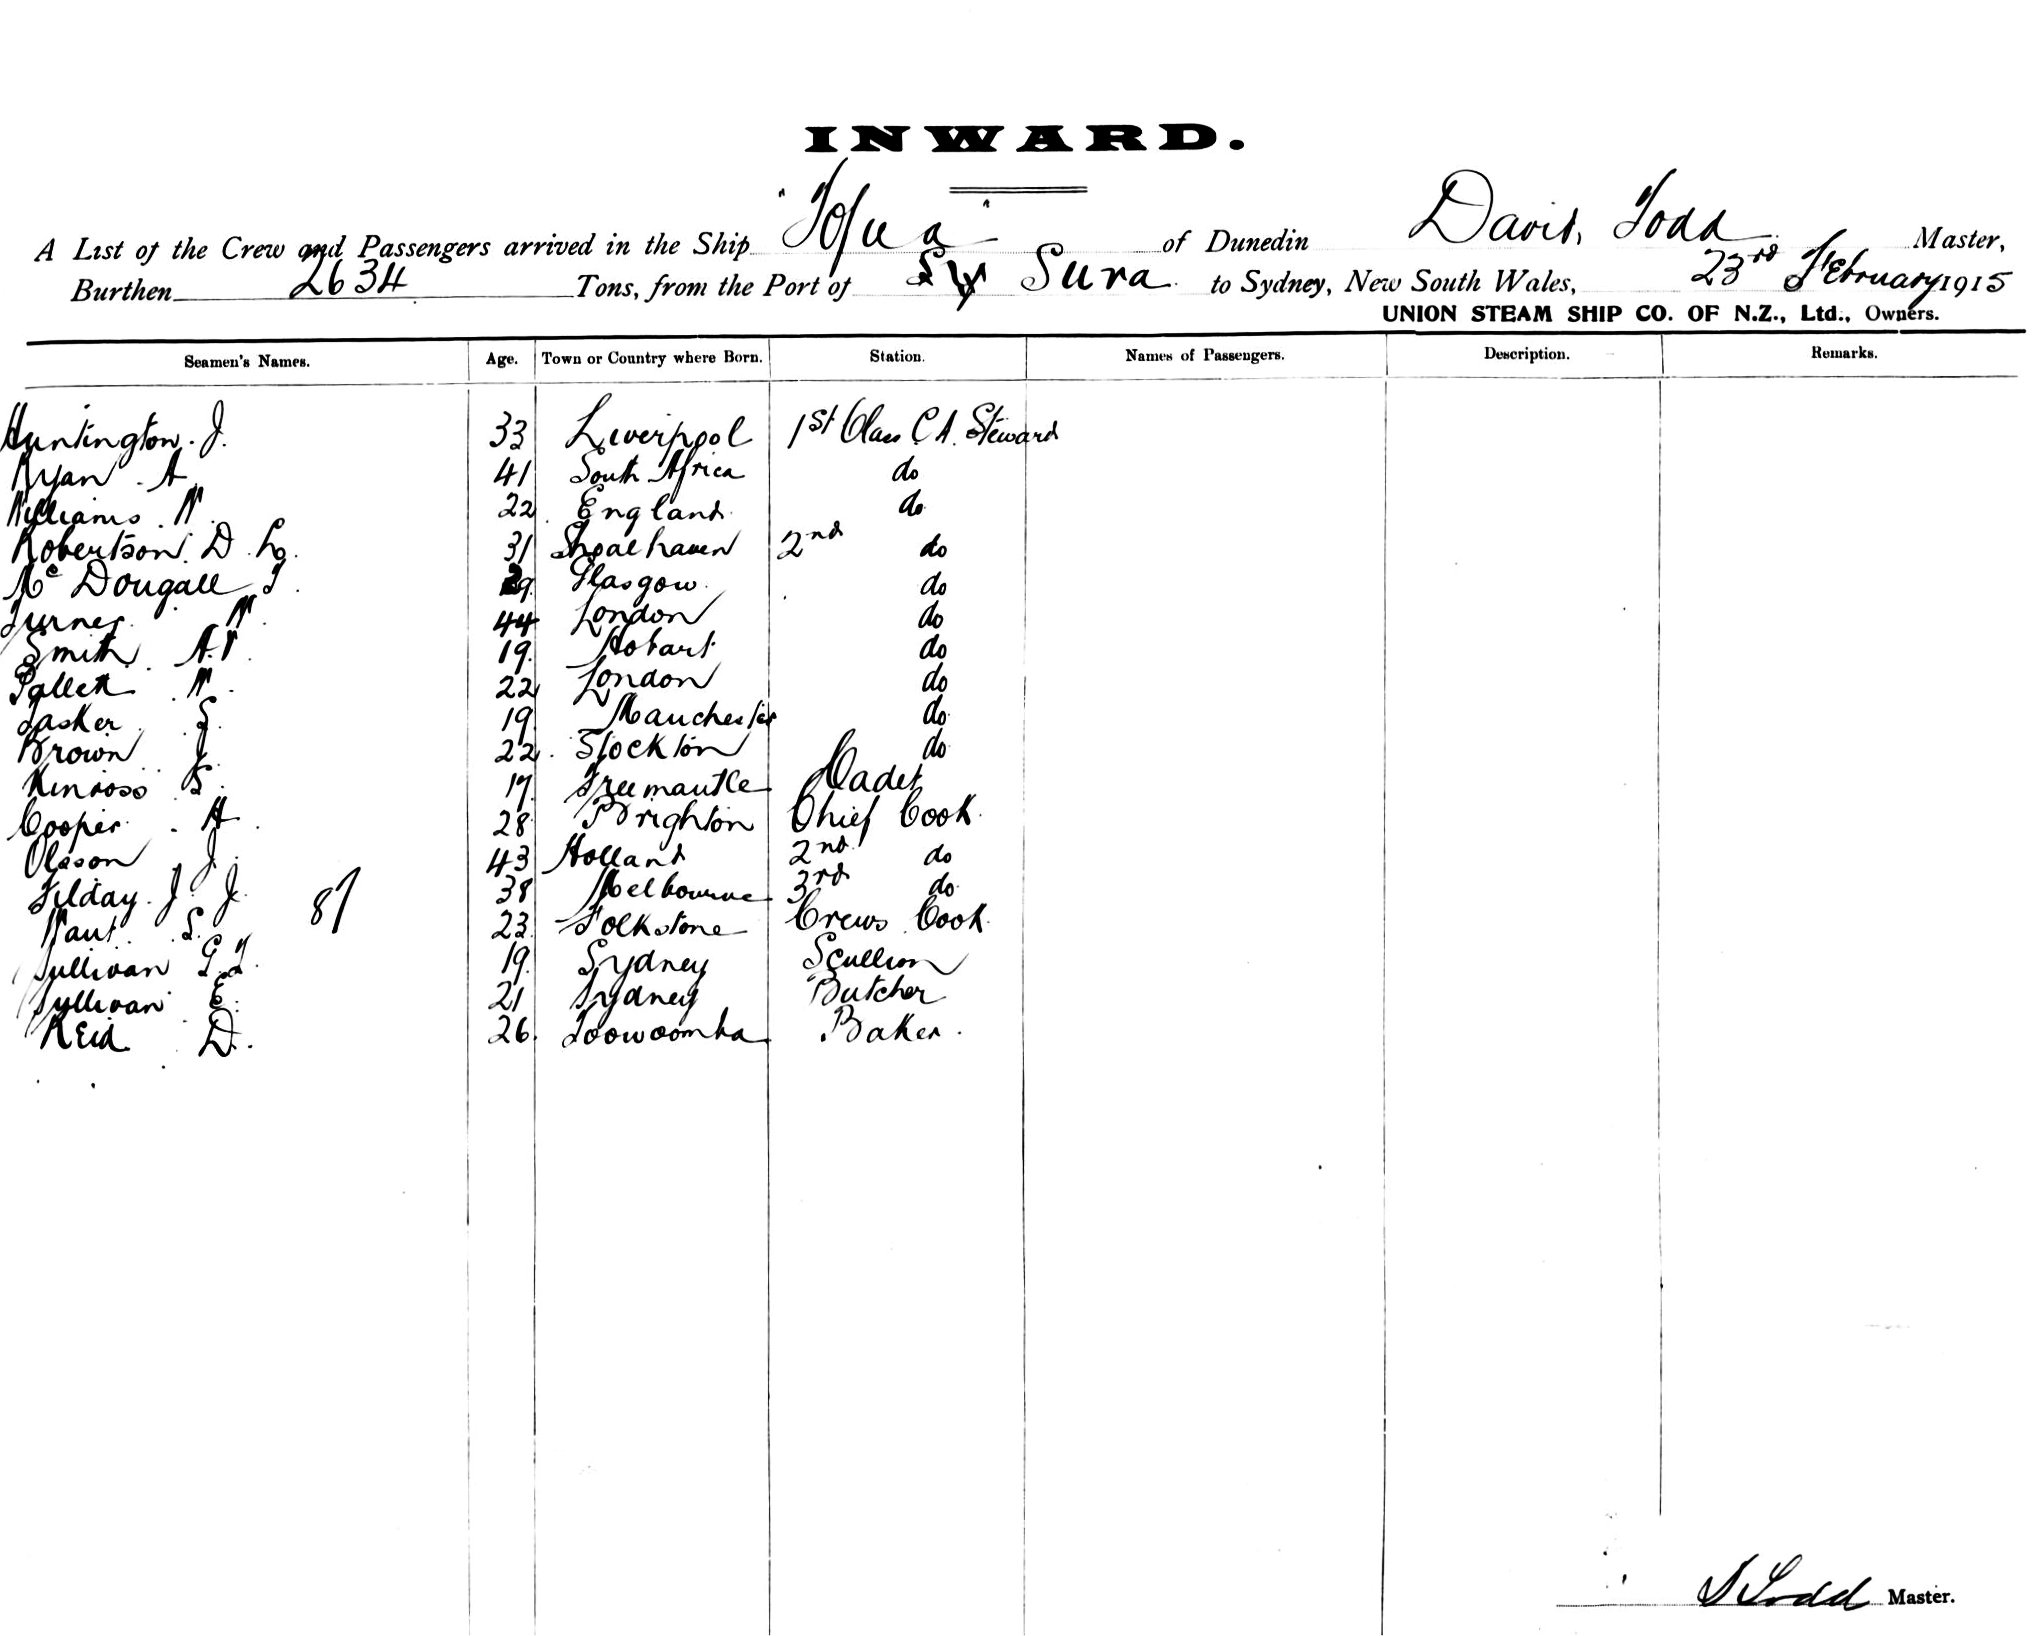 INWARD.
A List of the Crew and Passengers arrived in the Ship "Tofua" of Dunedin David, Todd Master,
Burthen 2634 Tons, from the Port of Suva to Sydney, New South Wales, 23rd February 1915
UNION STEAM SHIP CO. OF N.Z., Ltd., Owners.
Seamen's Names. Age. Town or Country where Born. Station. Names of Passengers. Description. Remarks.
Huntington. J. 33 Liverpool 1st Class C.A. Steward
Ryan. A 41 South Africa do
Williams. W. 22 England do
Robertson. D. 31 Shoalhaven 2nd do
McDougall T. 29 Glasgow do
Turner. W. 44 London do
Smith. A.V. 19 Hobart do
W. 22 London do
Tasker. 19 Manchester do
Brown J. 22 Stockton do
Kinross 17 Freemantle Cadet
Cooper. H. 28 Brighton Chief Cook
Olsson J. 43 Holland 2nd do
Tilday. J. J. 38 Melbourne 3rd do
87
S. 23 Folkstone Crews Cook
Sullivan G.T. 19 Sydney Scullion
Sullivan E. 21 Sydney Butcher
Reid D. 26 Toowoomba Baker.
D Todd Master.